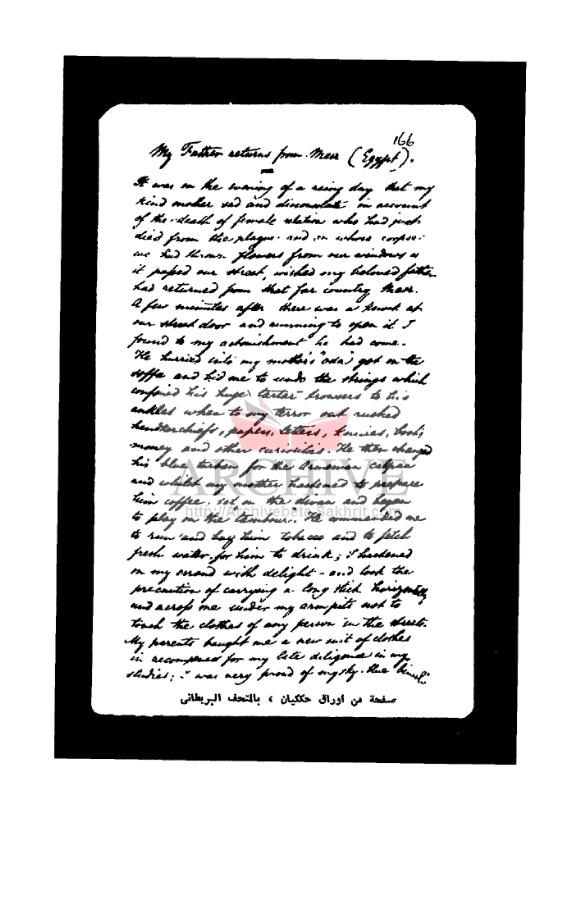 166
My Father returns from Masr (Egypt).
It was on the evening of a rainy day that my
kind mother sad and disconsolate on account
of the death of female relation who had just
died from the plague and on whose corpse
we had thrown flowers from our windows as
it passed our street, wished my beloved father
had returned from that far country Masr.
A few minutes after there was a knock at
our street door and running to open it I
found to my astonishment he had come.
He hurried into my mother's "oda" got on the
soffa and bid me to undo the strings which
confined his huge tartar trowsers to his
ankles when to my terror out rushed
handkerchiefs, papers, letters, books,
money and other curiosities. He then changed
his blue turban for the Armenian calpac
and whilst my mother hastened to prepare
him coffee, sat on the divan and began
to play on the tambour. He commanded me
to run and buy him tobacco and to fetch
fresh water for him to drink; I hastened
on my errand with delight - and took the
precaution of carrying a long stick horizontally
and across me under my armpits not to
touch the clothes of any person in the street.
My parents bought me a new suit of clothes
in recompense for my late diligence in my
studies; I was very proud of my sky-blue
صفحة من اوراق حككيان ، بالمتحف البريطاني
ARCHIVE
http://Archivebeta.Sakhrit.com